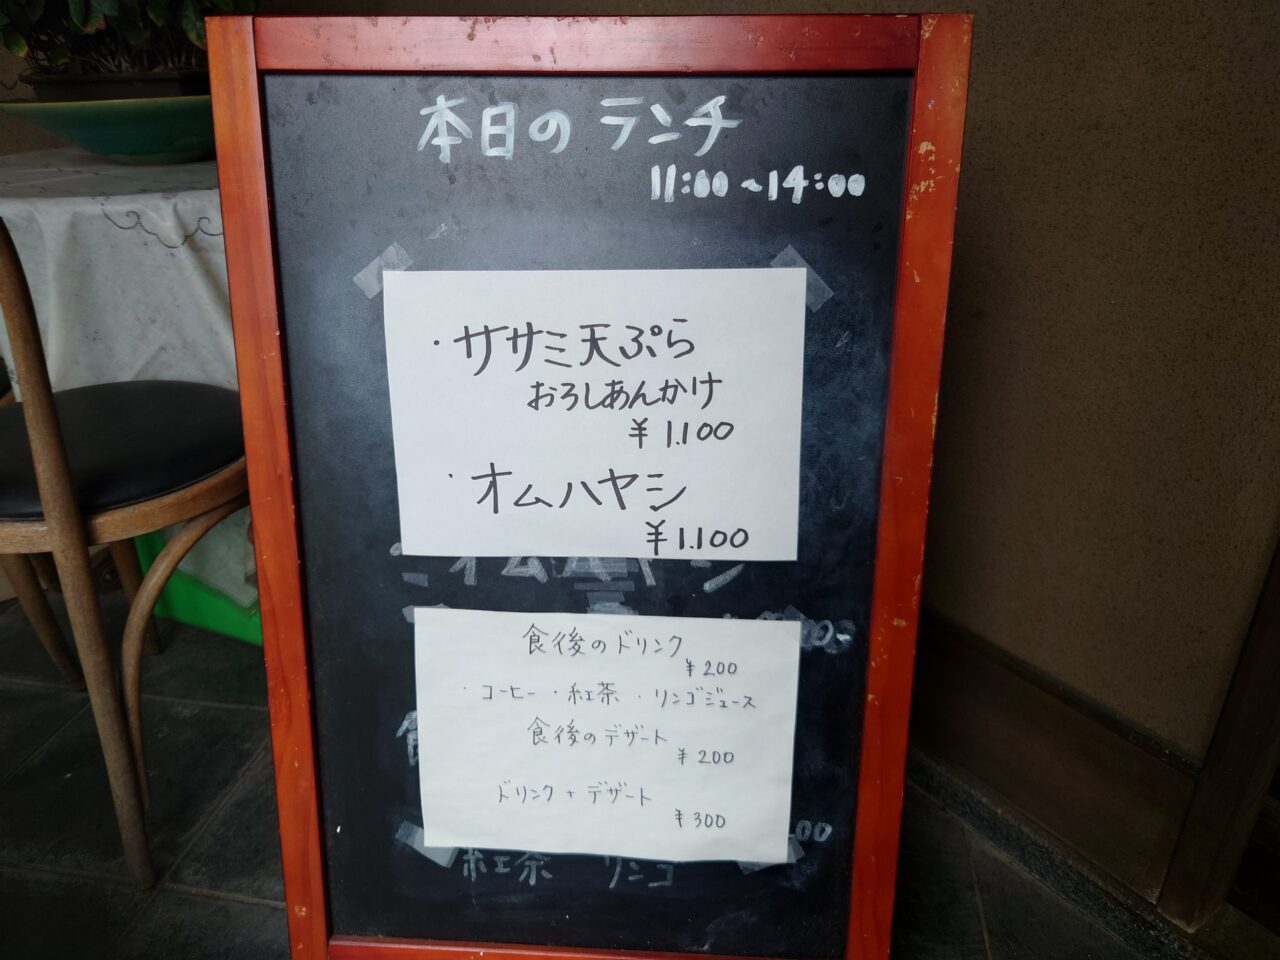 本日のランチ
11:00~14:00
・ササミ天ぷら
おろしあんかけ
¥1.100
・オムハヤシ
¥1.100
オムハヤシ
食後のドリンク
¥200
・コーヒー・紅茶・リンゴジュース
食後のデザート
¥200
ドリンク+デザート
¥300
食
00
紅茶 リンゴ